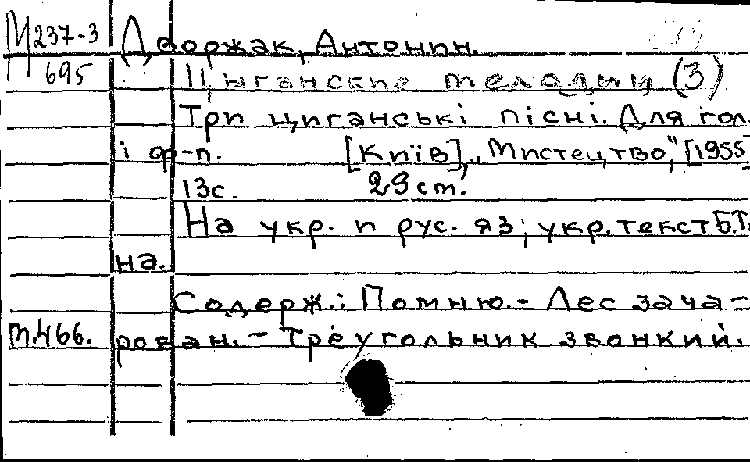 М237-3 Дворжак, Антонин.
695 Цыганские мелодии (3)
Три циганські пісні. Для гол.
і ф-п. [Київ], „Мистецтво", [1955]
13с. 29 ст.
На укр. и рус. яз; укр. текст Б.Т.
на.
Содерж.: Помню.- Лес зача-
м.466. рован.- Треугольник звонкий.